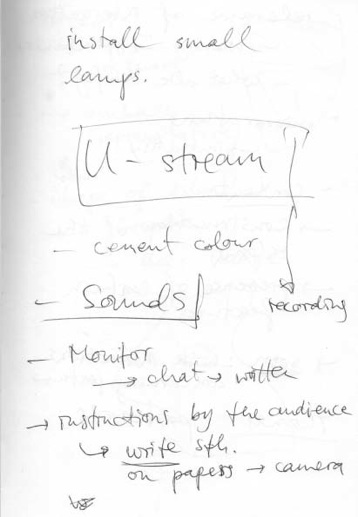 install small
lamps.
U - stream
- cement colour
- Sounds
recording
- Monitor
→ chat → written
→ instructions by the audience
↳ write sth.
on papers → camera